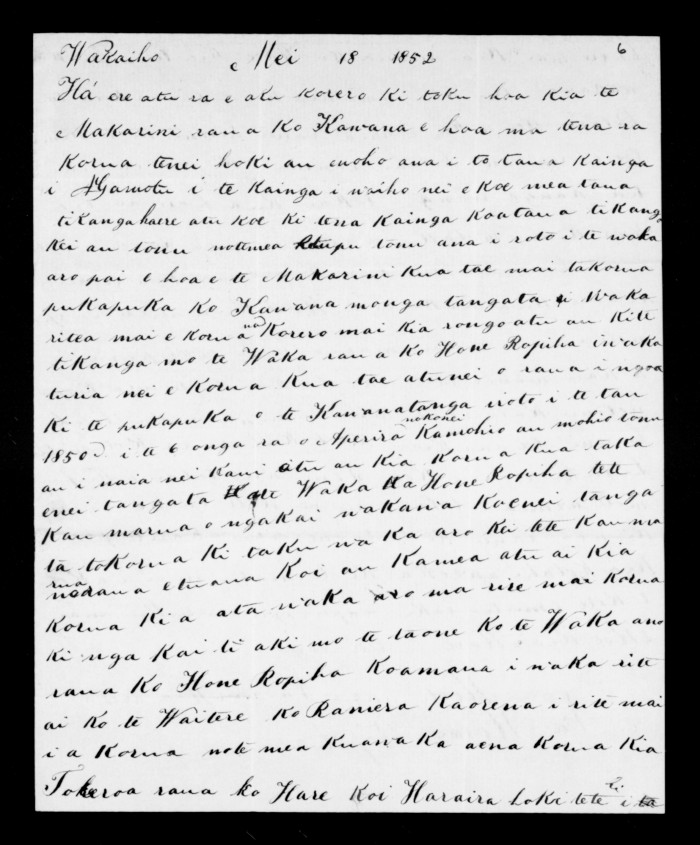 Wakaiho Mei 18 1852 6
Há ere atu ra e aku korero ki toku hoa kia te
Makarini raua ko Kawana e hoa ma tena ra
korua tenei hoki au enoho ana i to taua kainga
i Ngamotu i te kainga i waiho nei e koe mea taua
tikanga haere atu koe ki tena kainga koa taua tikanga
kei au tonu notemea tupu tonu ana i roto i te waka
aro pai e hoa e te Makarini kua tae mai takorua
pukapuka ko Kawana monga tangata i waka
ritea mai e korua nó Korero mai kia rongo atu au kite
tikanga mo te Waka raua ko Hone Ropiha iwaka
turia nei e korua kua tae atu nei o raua ingoa
ki te pukapuka o te Kawanatanga iroto i te tau
1850 i te 6 onga ra o Aperira nokonei Kamohio au mohio tonu
au i naia nei kaui atu au kia korua kua taka
enei tangata te Waka Hone Ropiha tete
kau marua o ngakai wakawa koenei tanga
ta tokorua ki taku wa ka aro kei tete kau ma
rua noraua etuana koi au kamea atu ai kia
korua kia ata waka aro ma rire mai korua
ki nga kai ti aki mo te taone ko te Waka ano
raua ko Hone Ropiha koamana i waka rite
ai ko te Waitere ko Raniera kaorena i rite mai
i a korua note mea kuawaka aena korua kia
Tokeroa raua ko Hare koi Haraira hoki tete hi i ta